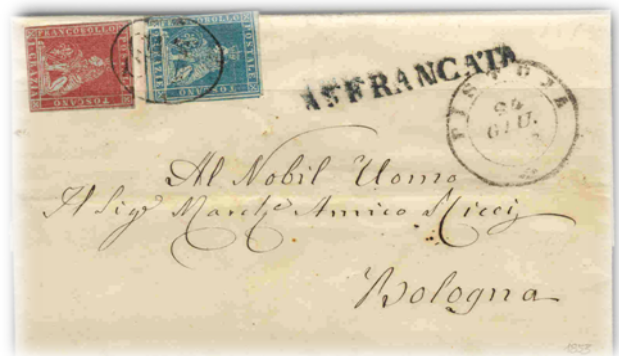 FRANCOBOLLO POSTALE
1 CRAZIA
TOSCANO
FRANCOBOLLO POSTALE
CRAZIE
TOSCANO
AFFRANCATA
PISTOJA
GIU.
Al Nobil Uomo
Il Sigr March.e Amico Ricci
Bologna
1853